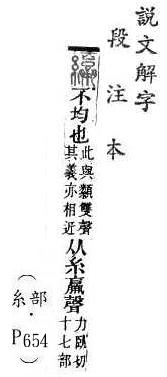 說文解字
段注本
不均也此與纇雙聲其義亦相近从糸羸聲力臥切十七部
（糸部・P654）